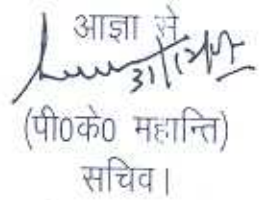 आज्ञा से
(पी0के0 महान्ति)
सचिव।